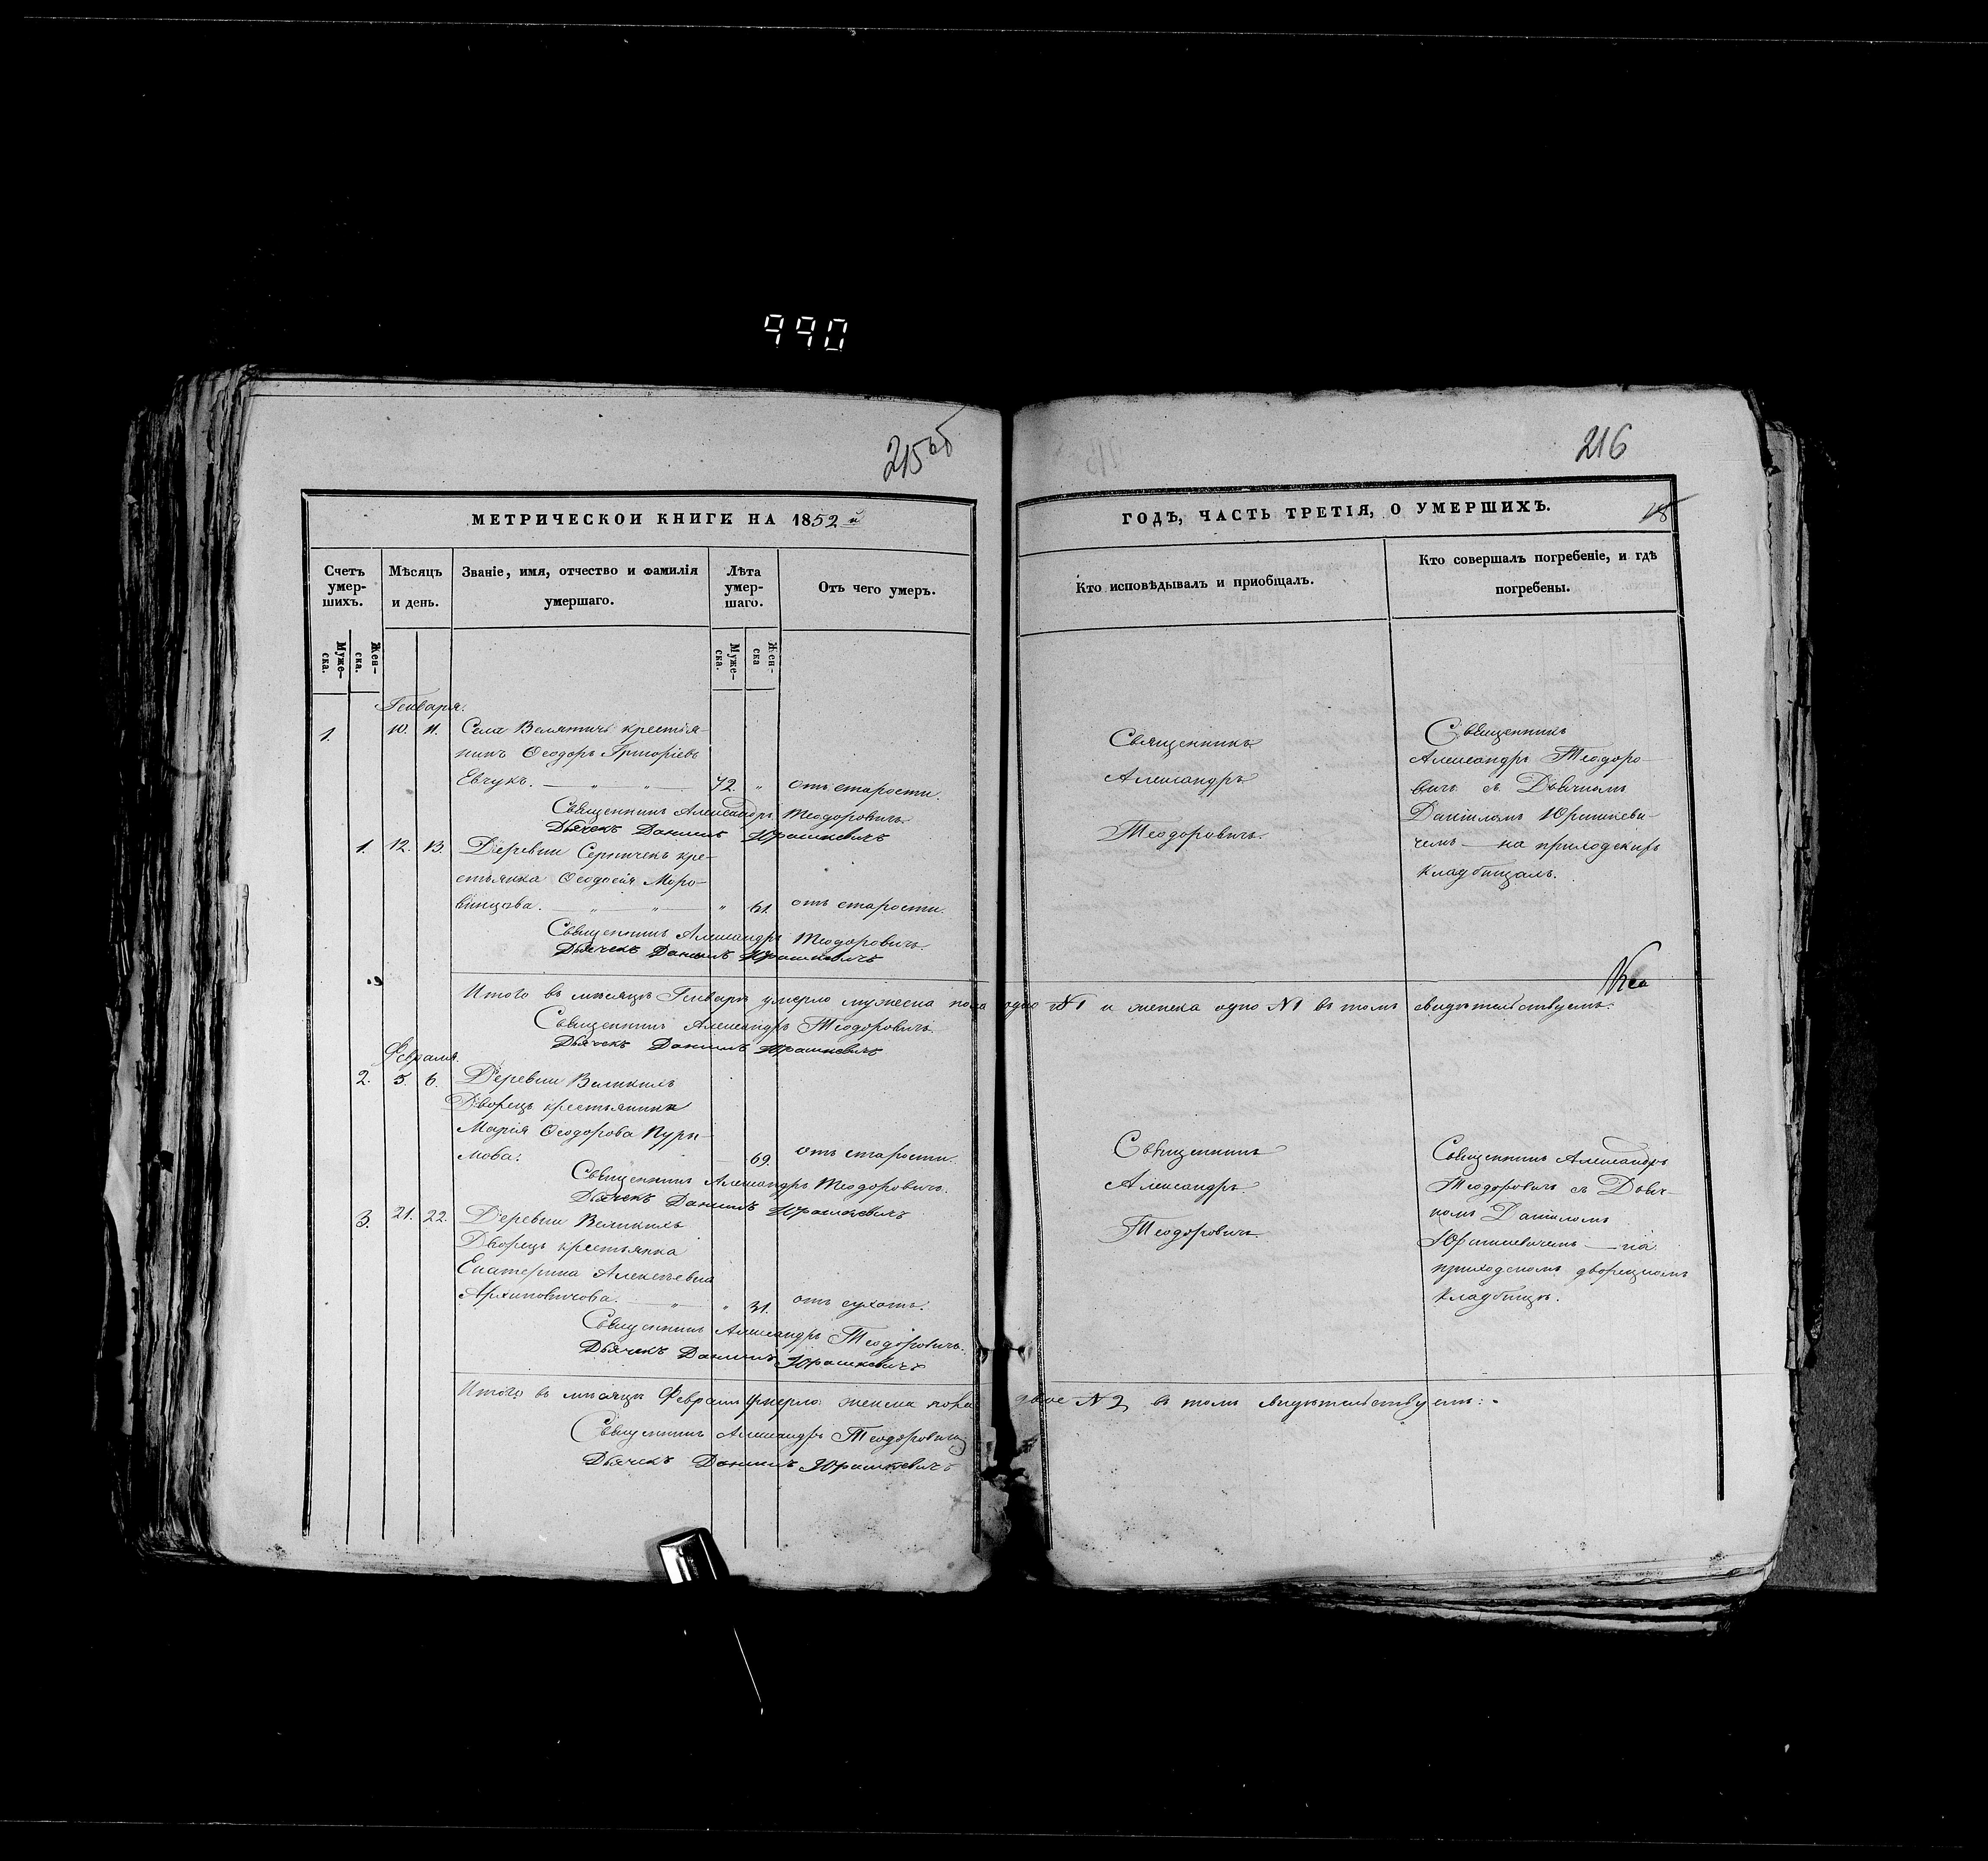 990
215 об
МЕТРИЧЕСКОЙ КНИГИ НА 1852 й
Счетъ умер-шихъ.
Мѣсяцъ и день.
Званіе, имя, отчество и фамилія умершаго.
Лѣта умер-шаго.
Отъ чего умеръ.
Муже-ска.
Жен-ска.
Муже-ска.
Жен-ска
Генваря.
1. 10. 11. Села Велятичъ крестья-
нинъ Ѳеодоръ Григоріевъ
Евчукъ. — „ — „ — 72. „ отъ старости.
Священникъ Александръ Теодоровичъ.
Дьячекъ Даніилъ Юрашкевичъ
1. 12. 13. Деревни кре-
стьянка Ѳеодосія Моро-
61. отъ старости.
Священникъ Александръ Теодоровичъ.
Дьячекъ Даніилъ Юрашкевичъ
Итого въ мѣсяцѣ Генварѣ умерло мужеска пола одно №1 и женска одно №1 въ томъ свидѣтельствуемъ.
Священникъ Александръ Теодоровичъ
Дьячекъ Даніилъ Юрашкевичъ
Февраля.
2. 5. 6. Деревни Великихъ
Дворецъ крестьянка
Марія Ѳеодорова
69. отъ старости.
Священникъ Александръ Теодоровичъ.
Дьячекъ Даніилъ Юрашкевичъ
3. 21. 22. Деревни Великихъ
Дворецъ крестьянка
Екатерина Алексѣевна
Архиповичова. — „ „ 31. отъ сухотъ.
Священникъ Александръ Теодоровичъ.
Дьячекъ Даніилъ Юрашкевичъ
Итого въ мѣсяцѣ Февралѣ умерло женска пола двое №2, въ томъ свидѣтельствуемъ:
Священникъ Александръ Теодоровичъ
Дьячекъ Даніилъ Юрашкевичъ
216
ГОДЪ, ЧАСТЬ ТРЕТІЯ, О УМЕРШИХЪ.
Кто исповѣдывалъ и пріобщалъ.
Кто совершалъ погребеніе, и гдѣ погребены.
Священникъ
Александръ
Теодоровичъ.
Священникъ
Александръ Теодоро-
вичъ съ Дьячкомъ
Даніиломъ Юрашкеви-
чемъ — на приходскихъ
кладбищахъ.
Священникъ
Александръ
Теодоровичъ.
Священникъ Александръ
Теодоровичъ съ Дьяч-
комъ Даніиломъ
Юрашкевичемъ — на
приходскомъ дворецкомъ
кладбищѣ.